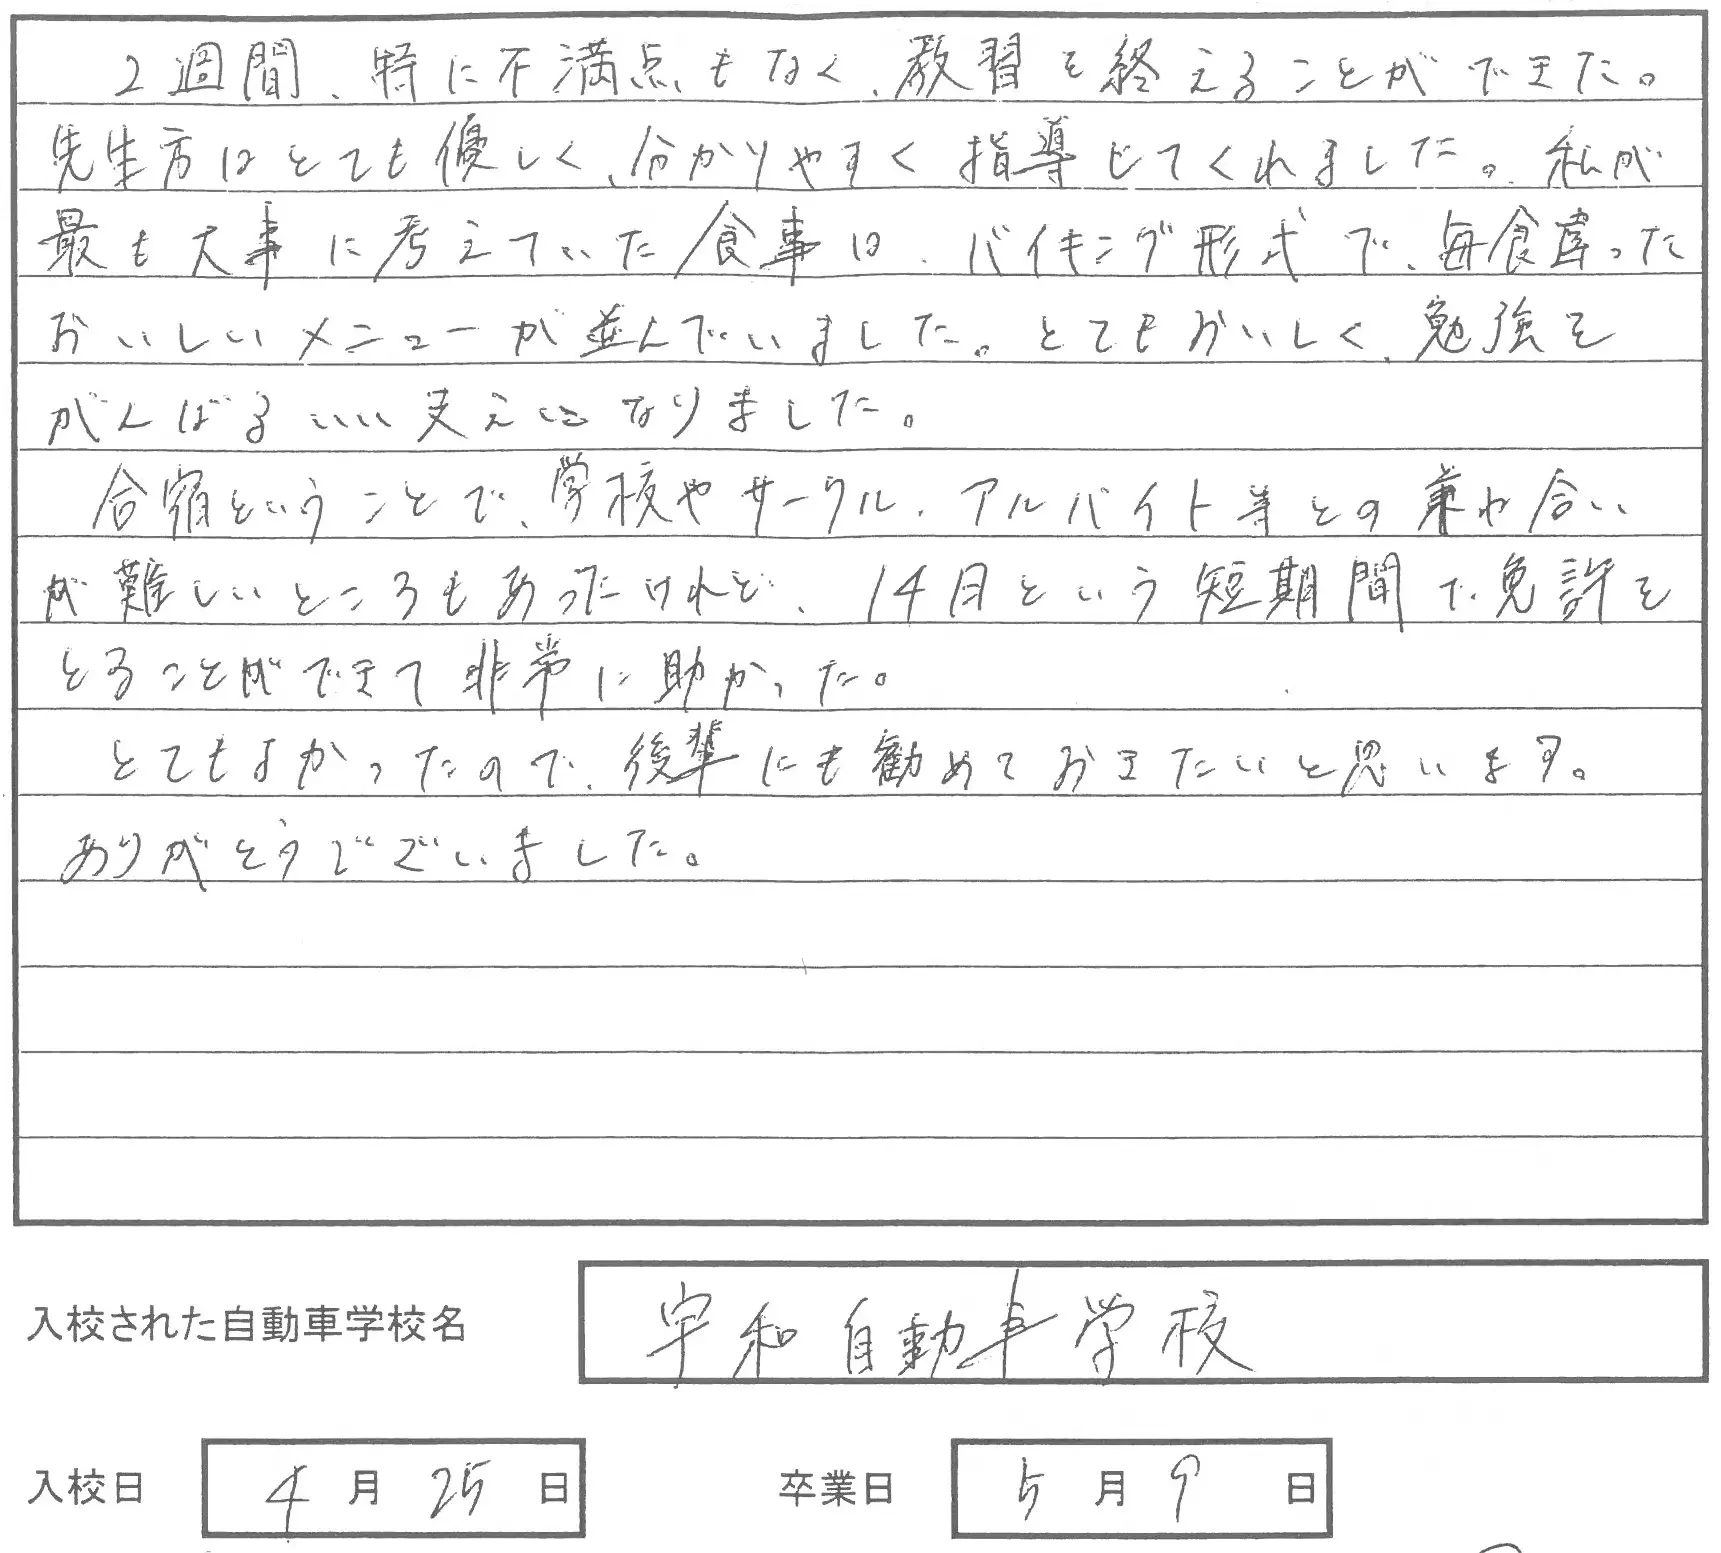 2週間、特に不満点もなく、教習を終えることができた。
先生方はとても優しく、分かりやすく指導してくれました。私が
最も大事に考えていた食事は、バイキング形式で、毎食違った
おいしいメニューが並んでいました。とてもおいしく、勉強を
がんばるいい支えになりました。
合宿ということで、学校やサークル、アルバイト等との兼ね合い
が難しいところもあったけれど、14日という短期間で免許を
とることができて非常に助かった。
とてもよかったので、後輩にも勧めておきたいと思います。
ありがとうございました。
入校された自動車学校名 宇和自動車学校
入校日 4月25日 卒業日 5月9日